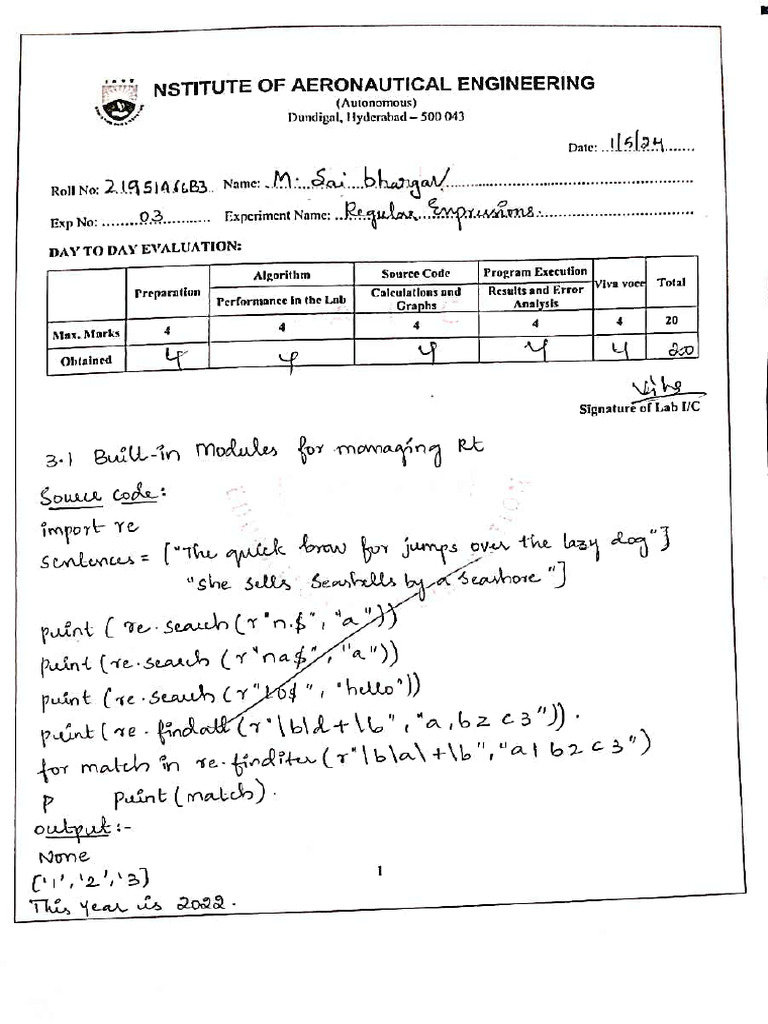 NSTITUTE OF AERONAUTICAL ENGINEERING
(Autonomous)
Dundigal, Hyderabad – 500 043
Date: 1/5/24
Roll No: 21951A66B3 Name: M. Sai bhargav
Exp No: 03 Experiment Name: Regular Exprussions.
DAY TO DAY EVALUATION:
Preparation Algorithm Source Code Program Execution Viva voce Total
Performance in the Lab Calculations and Graphs Results and Error Analysis
Max. Marks 4 4 4 4 4 20
Obtained 4 4 4 4 4 20
Signature of Lab I/C
3.1 Built-in Modules for managing Rt
Source code:
import re
sentences = ["The quick brow for jumps over the lazy dog"]
"she sells Seashells by a seashore"]
print ( re.search (r"n.$", "a"))
print (re.search (r"na$", "a"))
print (re.search (r"lo$", "hello"))
print (re.findall (r"\b\d+\b", "a, b2 c3")).
for match in re.finditer (r"\b\a\+\b", "a1 b2 c3")
p print (match).
output :-
None
['1', '2', '3]
This year is 2022.
1